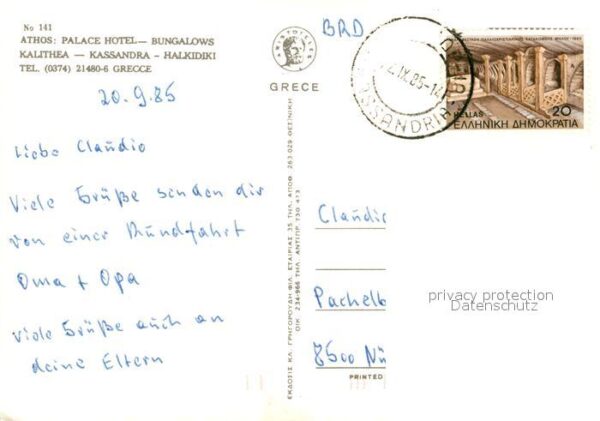 No 141
ATHOS: PALACE HOTEL— BUNGALOWS
KALITHEA — KASSANDRA — HALKIDIKI
TEL. (0374) 21480-6 GRECCE
20.9.85
Liebe Claudio
Viele Grüße senden dir
von einer Rundfahrt
Oma + Opa
Viele Grüße auch an
deine Eltern
GRECE
ΕΚΔΟΣΙΣ ΚΛ. ΓΡΗΓΟΡΟΥΔΗ ΦΙΛ. ΕΤΑΙΡΙΑΣ 35 ΤΗΛ. ΑΠΟΘ. 263.029 ΘΕΣ/ΝΙΚΗ
ΟΙΚ. 234-966 ΤΗΛ. ΑΝΤΙΠΡ. 730 413
BRD
IX.85-14
SSANDRIA
HELLAS 20
ΕΛΛΗΝΙΚΗ ΔΗΜΟΚΡΑΤΙΑ
Claudio
Pachelb
8500 Nü
privacy protection
Datenschutz
PRINTED